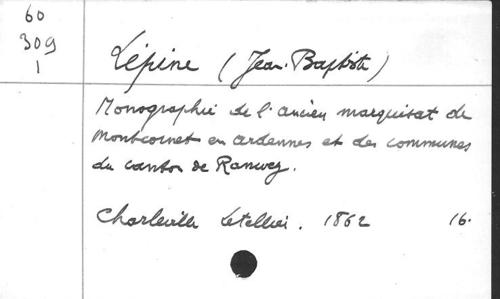 60
309
1
Lépine (Jean-Baptiste)
Monographie de l'ancien marquisat de
Montcornet en ardennes et des communes
du canton de Renwez.
Charleville Letellier. 1862 16.